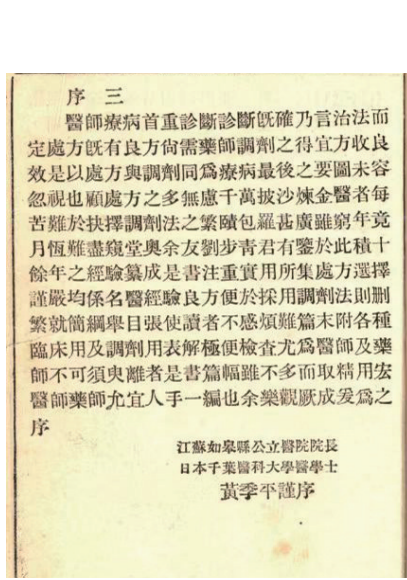 序三
醫師療病首重診斷診斷旣確乃言治法而
定處方旣有良方尙需藥師調劑之得宜方收良
效是以處方與調劑同爲療病最後之要圖未容
忽視也顧處方之多無慮千萬披沙煉金醫者每
苦難於抉擇調劑法之繁賾包羅甚廣雖窮年竟
月恆難盡窺堂奧余友劉步靑君有鑒於此積十
餘年之經驗纂成是書注重實用所集處方選擇
謹嚴均係名醫經驗良方便於採用調劑法則删
繁就簡綱舉目張使讀者不感煩難篇末附各種
臨床用及調劑用表解極便檢查尤爲醫師及藥
師不可須臾離者是書篇幅雖不多而取精用宏
醫師藥師允宜人手一編也余樂觀厥成爰爲之
序
江蘇如皋縣公立醫院院長
日本千葉醫科大學醫學士
黃季平謹序